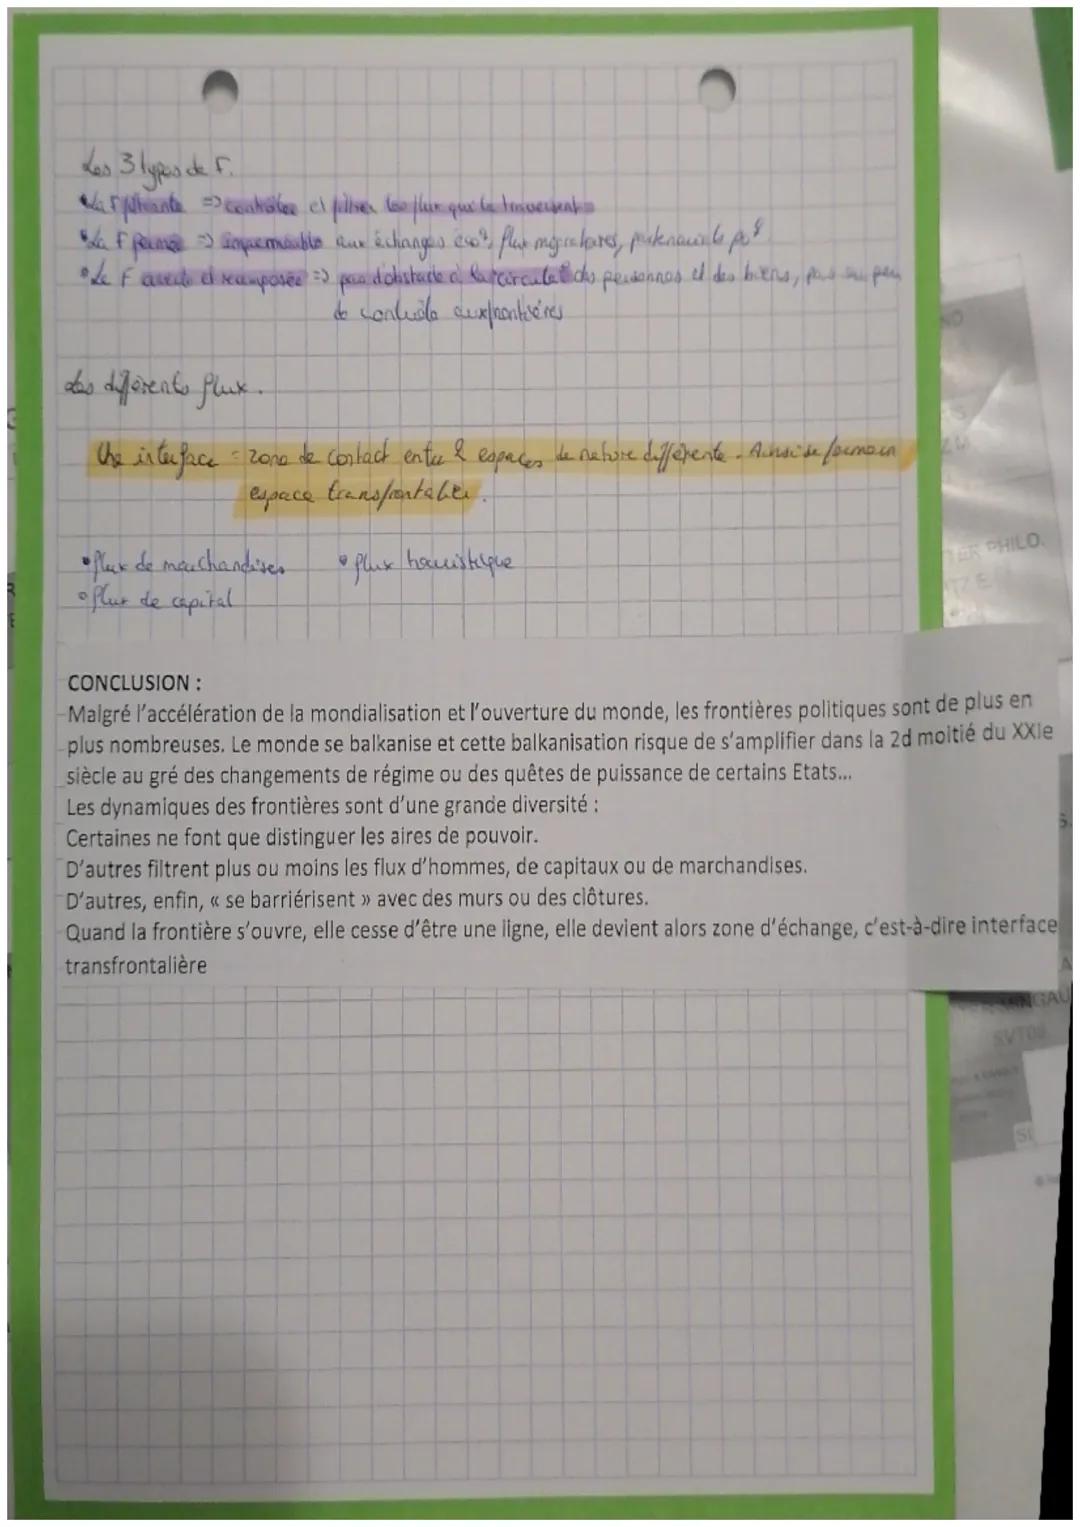 Les 3 types de F.
• La F filtrante => contrôler et filtrer les flux qui la traversent
• La F fermée => imperméable aux échanges éco⁹, flux migratoires, partenariats po⁹
• La F ouverte et recomposée => pas d'obstacle à la circulat° des personnes et des biens, pas ou peu
de contrôle aux frontières
Les différents flux.
Une interface = zone de contact entre 2 espaces de nature différente. Ainsi se forme un
espace transfrontalier.
• flux de marchandises • flux touristique
• flux de capital
CONCLUSION :
Malgré l'accélération de la mondialisation et l'ouverture du monde, les frontières politiques sont de plus en
plus nombreuses. Le monde se balkanise et cette balkanisation risque de s'amplifier dans la 2d moitié du XXIe
siècle au gré des changements de régime ou des quêtes de puissance de certains Etats...
Les dynamiques des frontières sont d'une grande diversité :
Certaines ne font que distinguer les aires de pouvoir.
D'autres filtrent plus ou moins les flux d'hommes, de capitaux ou de marchandises.
D'autres, enfin, « se barriérisent » avec des murs ou des clôtures.
Quand la frontière s'ouvre, elle cesse d'être une ligne, elle devient alors zone d'échange, c'est-à-dire interface
transfrontalière
PHILO.